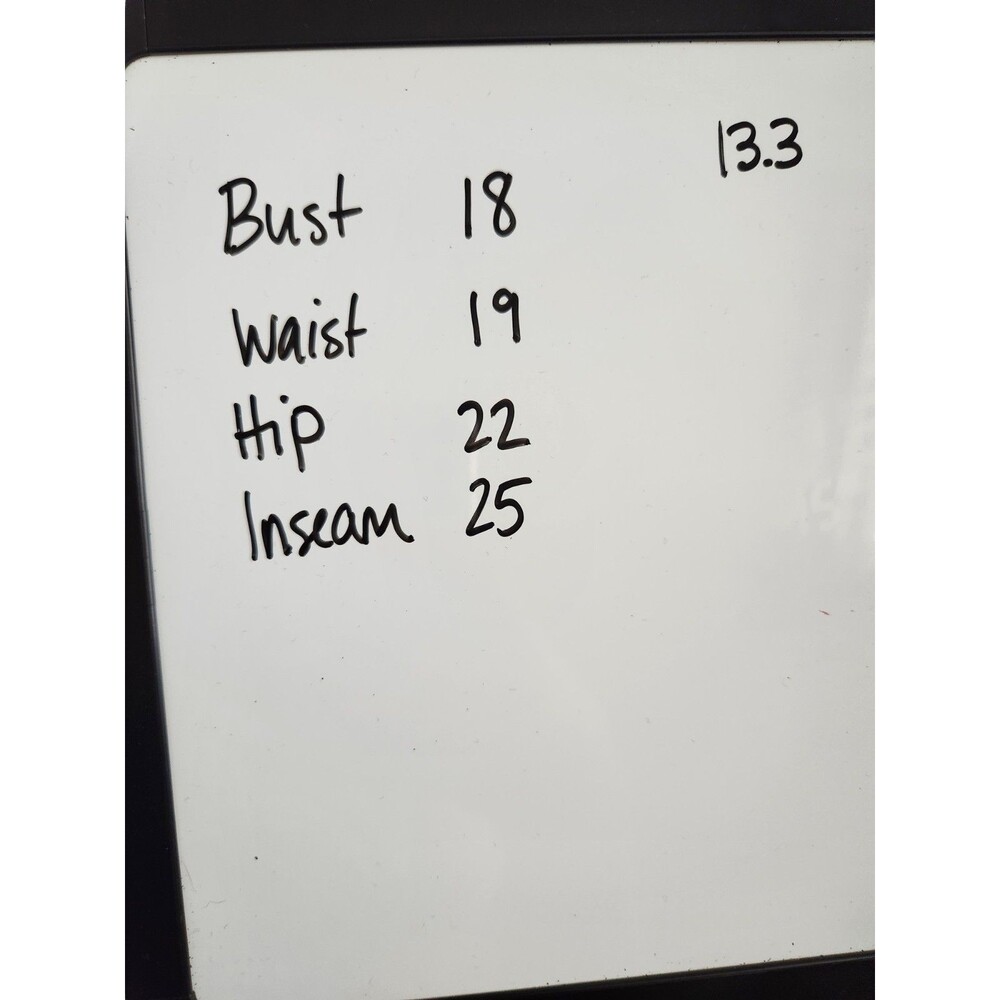 13.3
Bust 18
Waist 19
Hip 22
Inseam 25